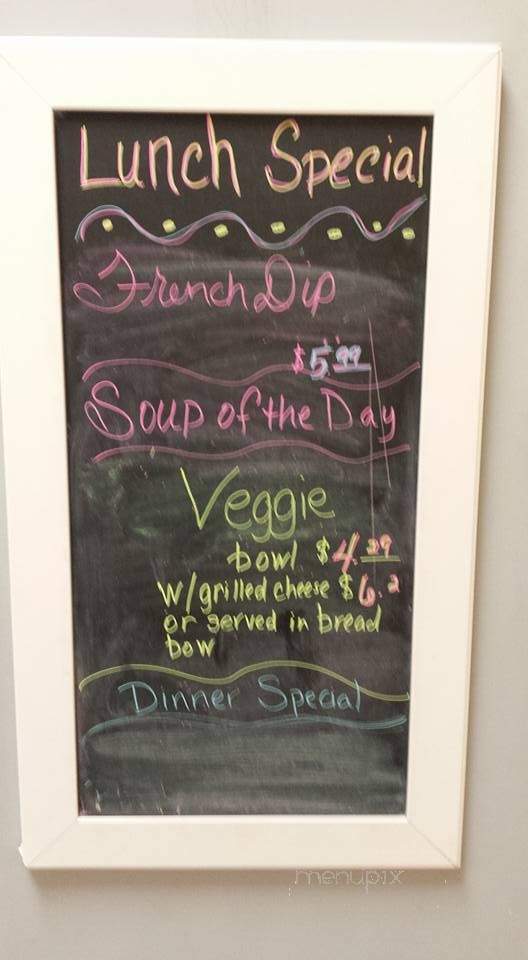 Lunch Special
French Dip
$5.99
Soup of the Day
Veggie
bowl $4.29
w/grilled cheese $6.2
or served in bread
bow
Dinner Special
menupix